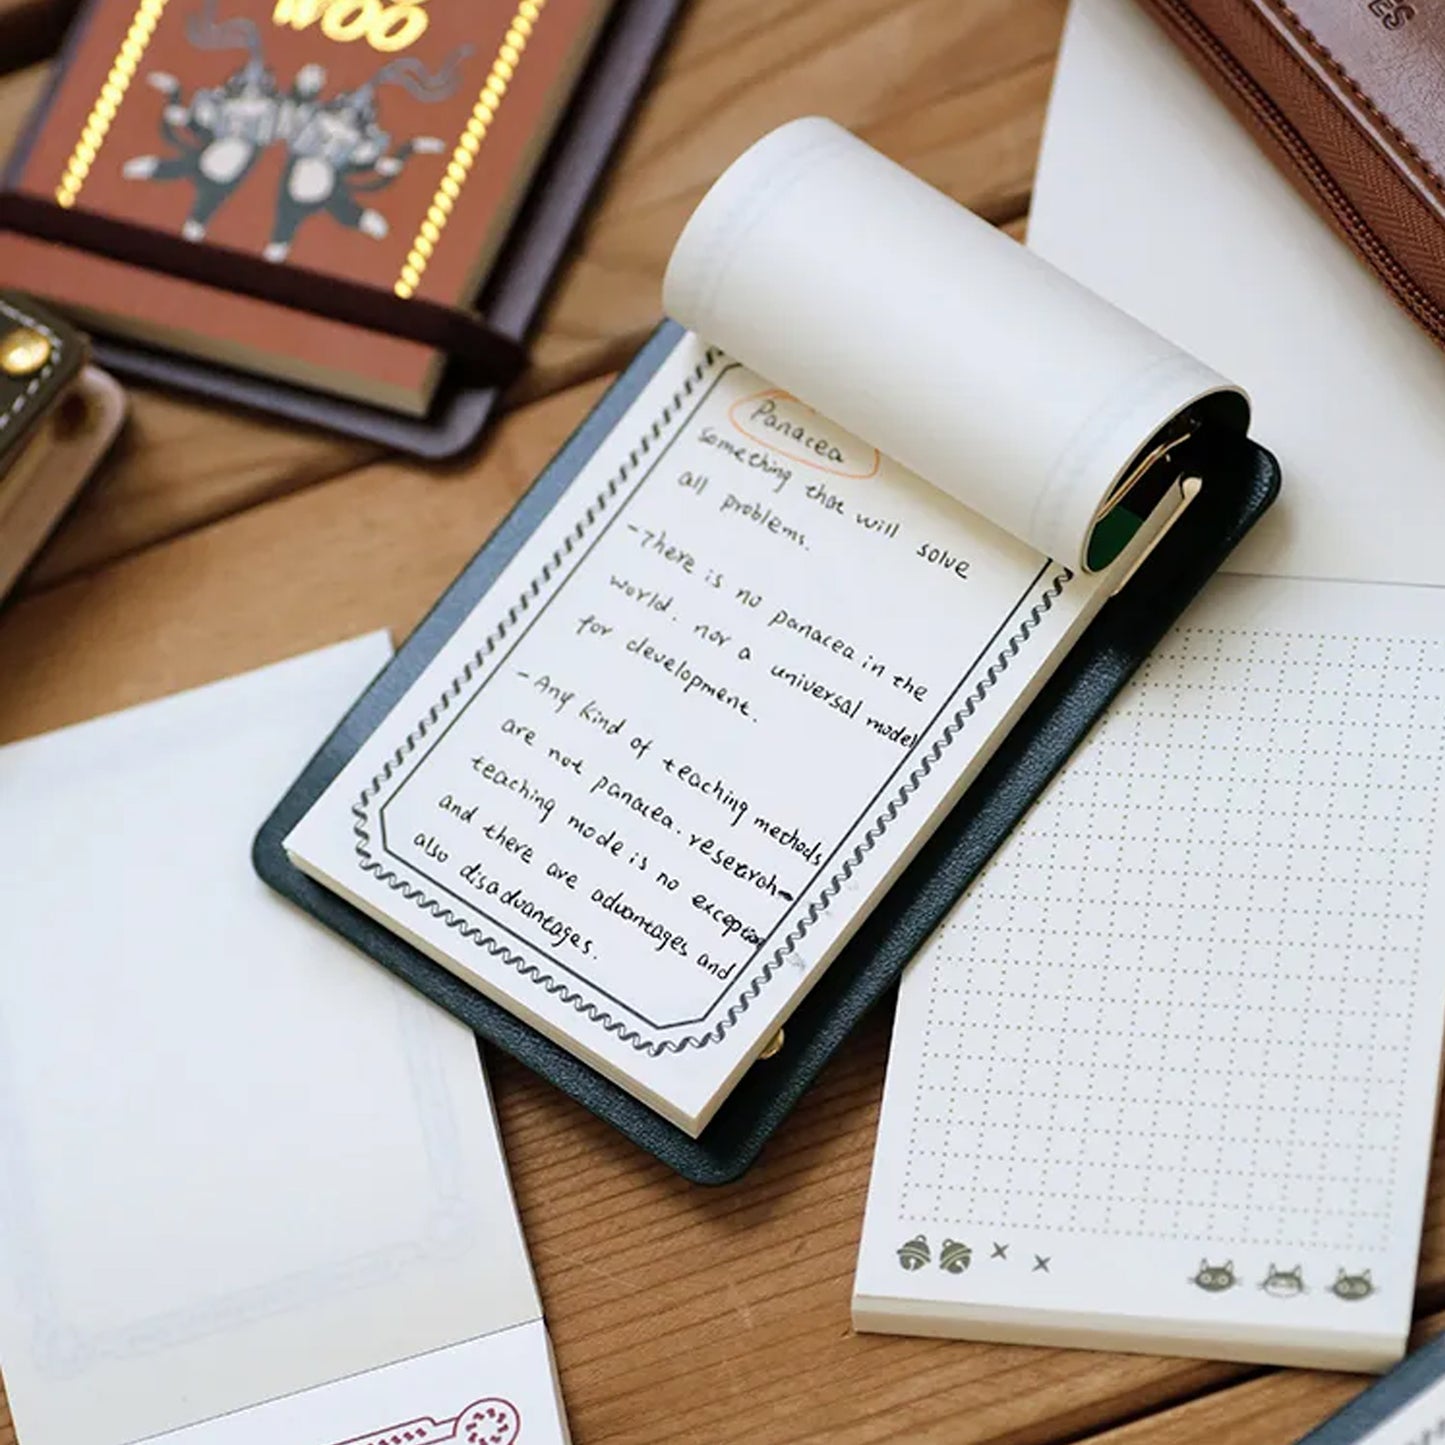 WOO
ES
Panacea
something that will solve
all problems.
- There is no panacea in the
world. nor a universal model
for development.
- Any kind of teaching methods
are not panacea. research-
teaching mode is no exception
and there are advantages and
also disadvantages.